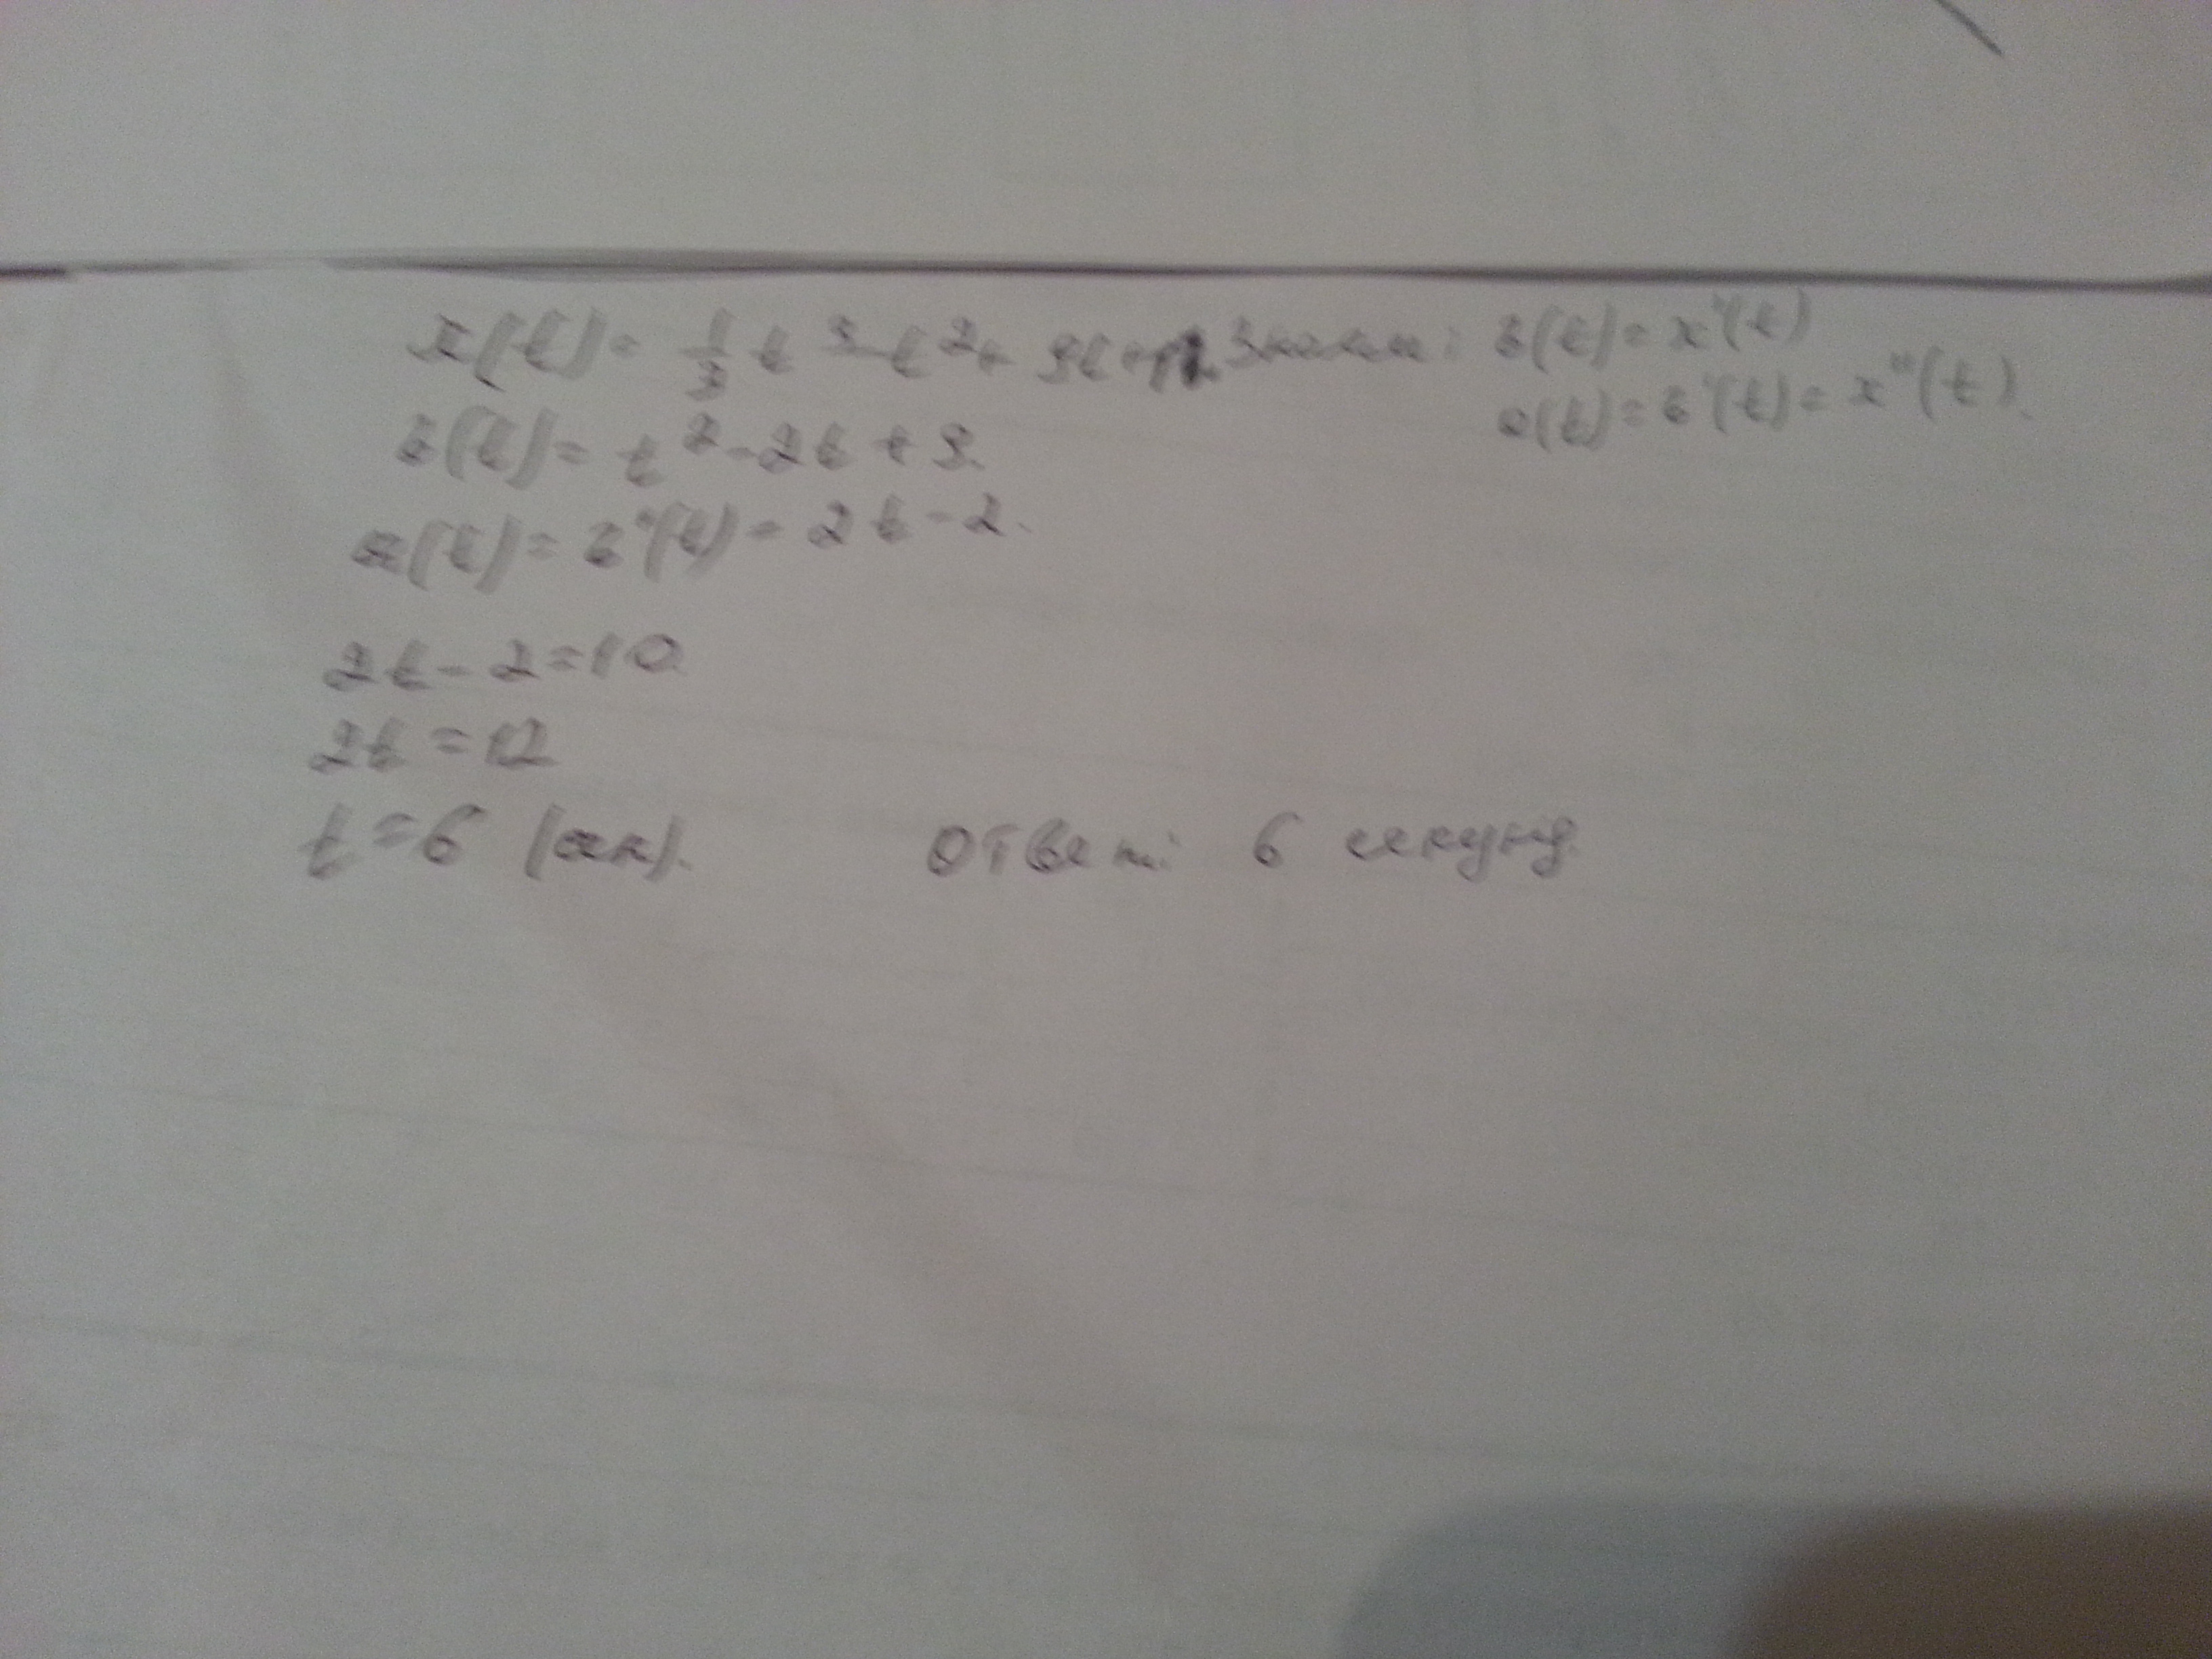 x(t) = 1/3 t³ - t² + 9t + 12 Знаем: v(t) = x'(t)
a(t) = v'(t) = x''(t).
v(t) = t² - 2t + 9.
a(t) = v'(t) = 2t - 2.
2t - 2 = 10
2t = 12
t = 6 (сек). Ответ: 6 секунд.